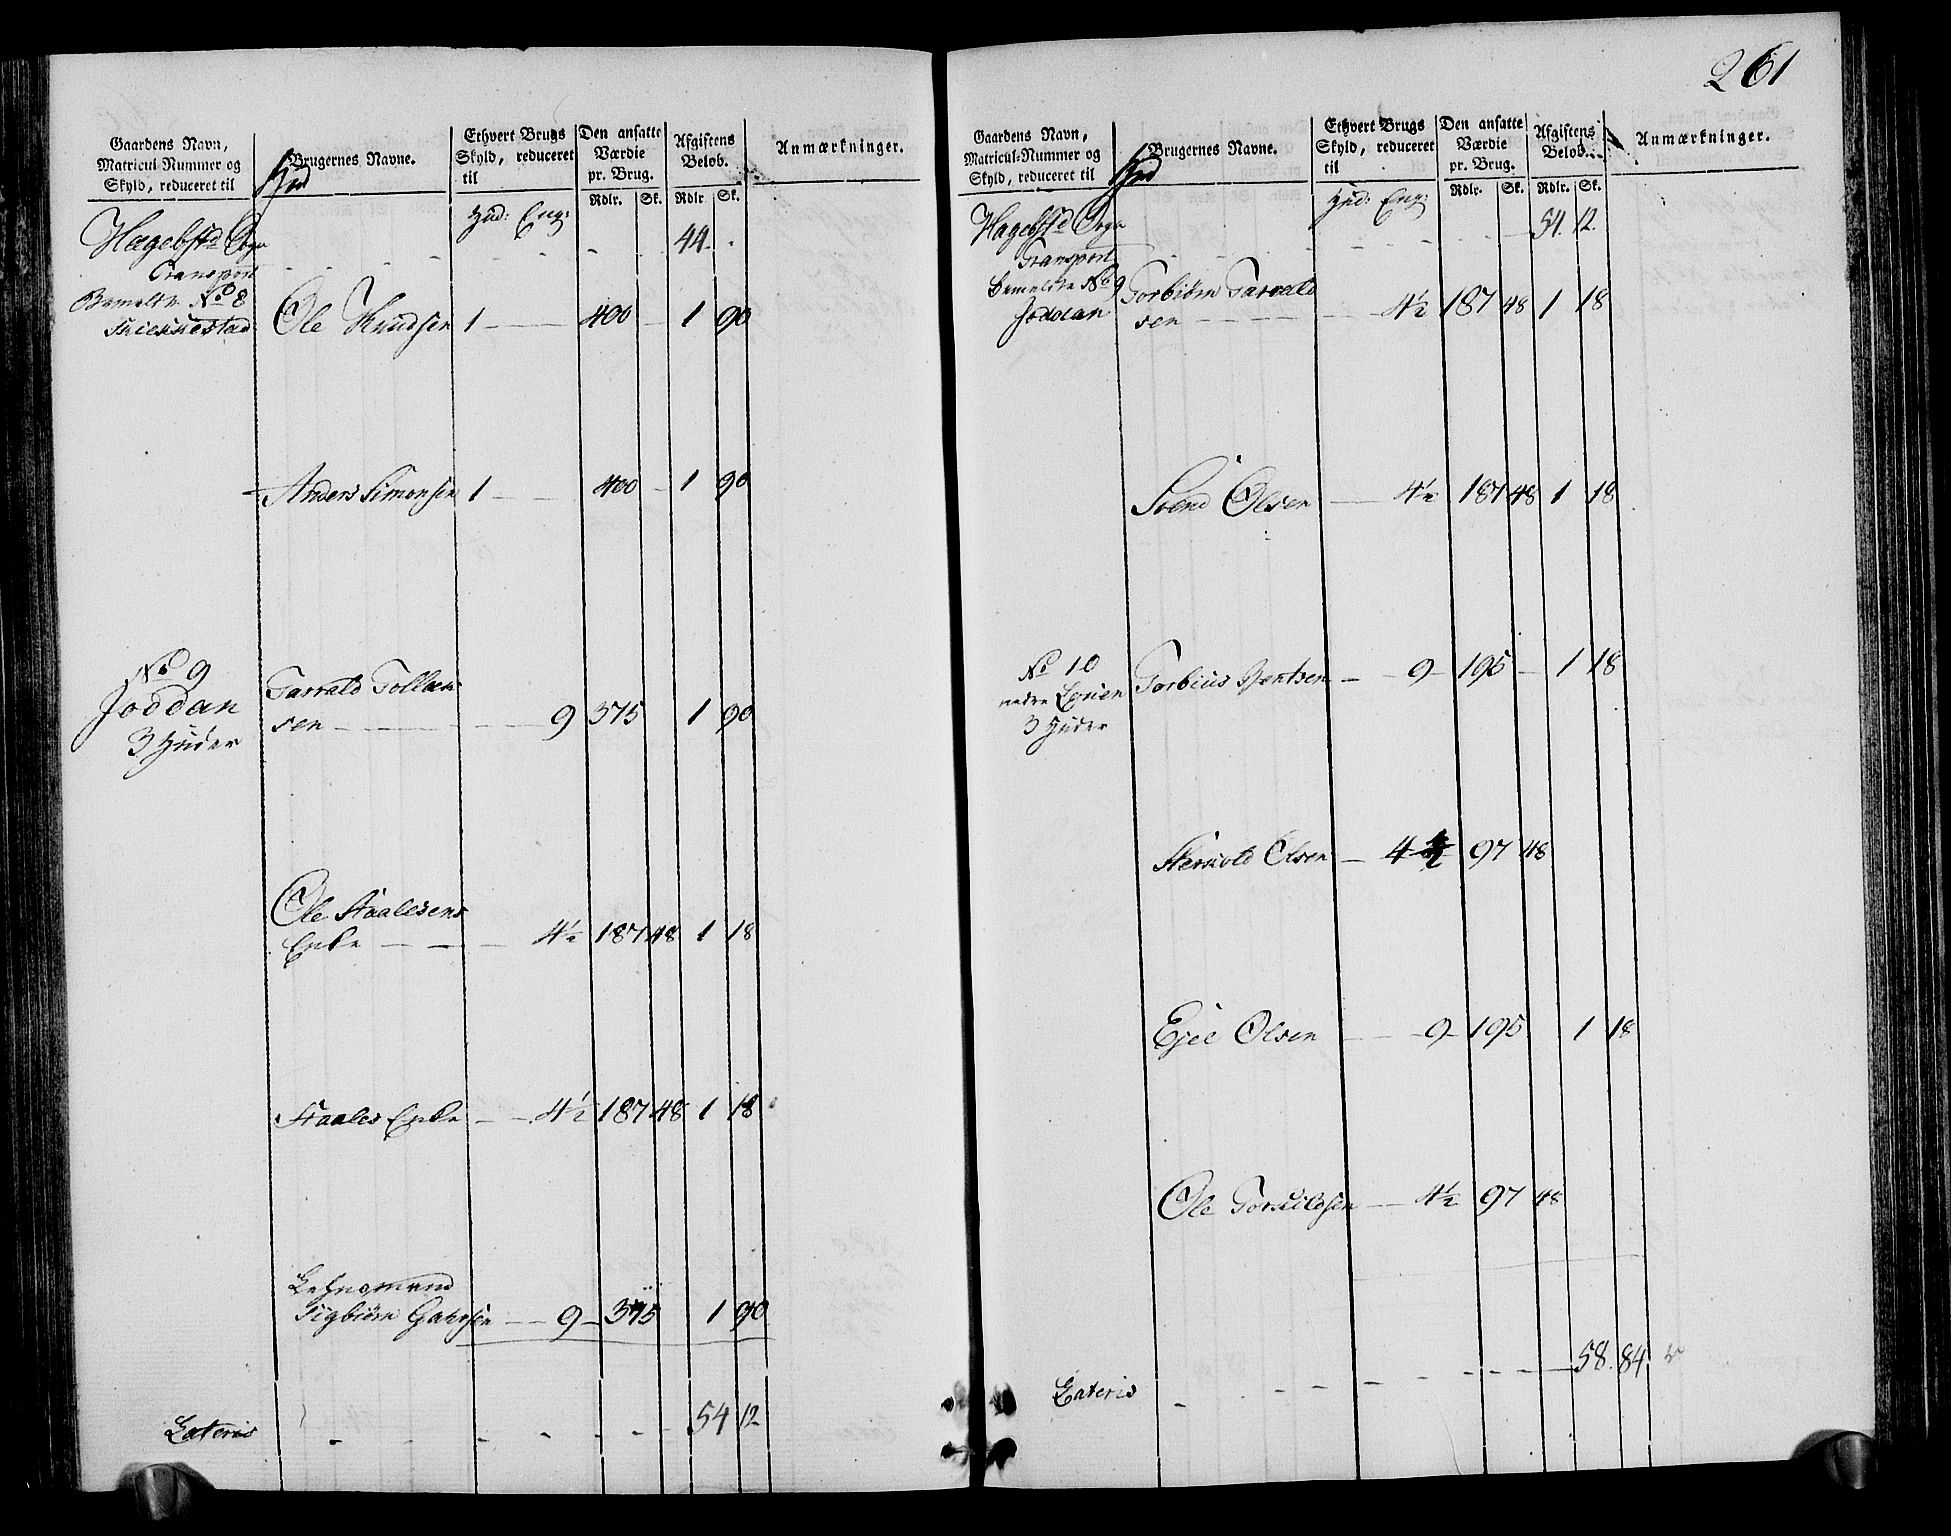 261
Gaardens Navn, Matricul-Nummer og Skyld, reduceret til Hud
Brugernes Navne.
Ethvert Brugs Skyld, reduceret til
Den ansatte Værdie pr. Brug.
Afgiftens Beløb.
Anmærkninger.
Rdlr. Sk. Rdlr Sk.
Hud: Eng:
Hægebstd Sogn
Transport 44
Bemeldte No 8
Ole Knudsen 1 400 1 90
Anders Simonsen 1 400 1 90
No 9
Joddan
3 Huder
Tarrald Tollac
sen 9 375 1 90
Ole Staalesens
Enke 4½ 187 48 1 18
Staales Enke 4½ 187 48 1 18
Lehnsmand
Sigbiørn 9 375 1 90
Lateris 54 12
Gaardens Navn, Matricul-Nummer og Skyld, reduceret til Hud
Brugernes Navne.
Ethvert Brugs Skyld, reduceret til
Den ansatte Værdie pr. Brug.
Afgiftens Beløb.
Anmærkninger.
Rdlr. Sk. Rdlr. Sk.
Hud: Eng:
Hægebstd Sogn
Transport 54. 12.
bemeldte No 9
Joddan
Torbiørn Tarrald
sen 4½ 187 48 1 18
Svend Olsen 4½ 187 48 1 18
No 10
nedre
3 Huder
Torbius Berntsen 9 195 1 18
Olsen 4½ 97 48
Ejel Olsen 9 195 1 18
Ole Torkildsen 4½ 97 48
Lateris 58. 84.